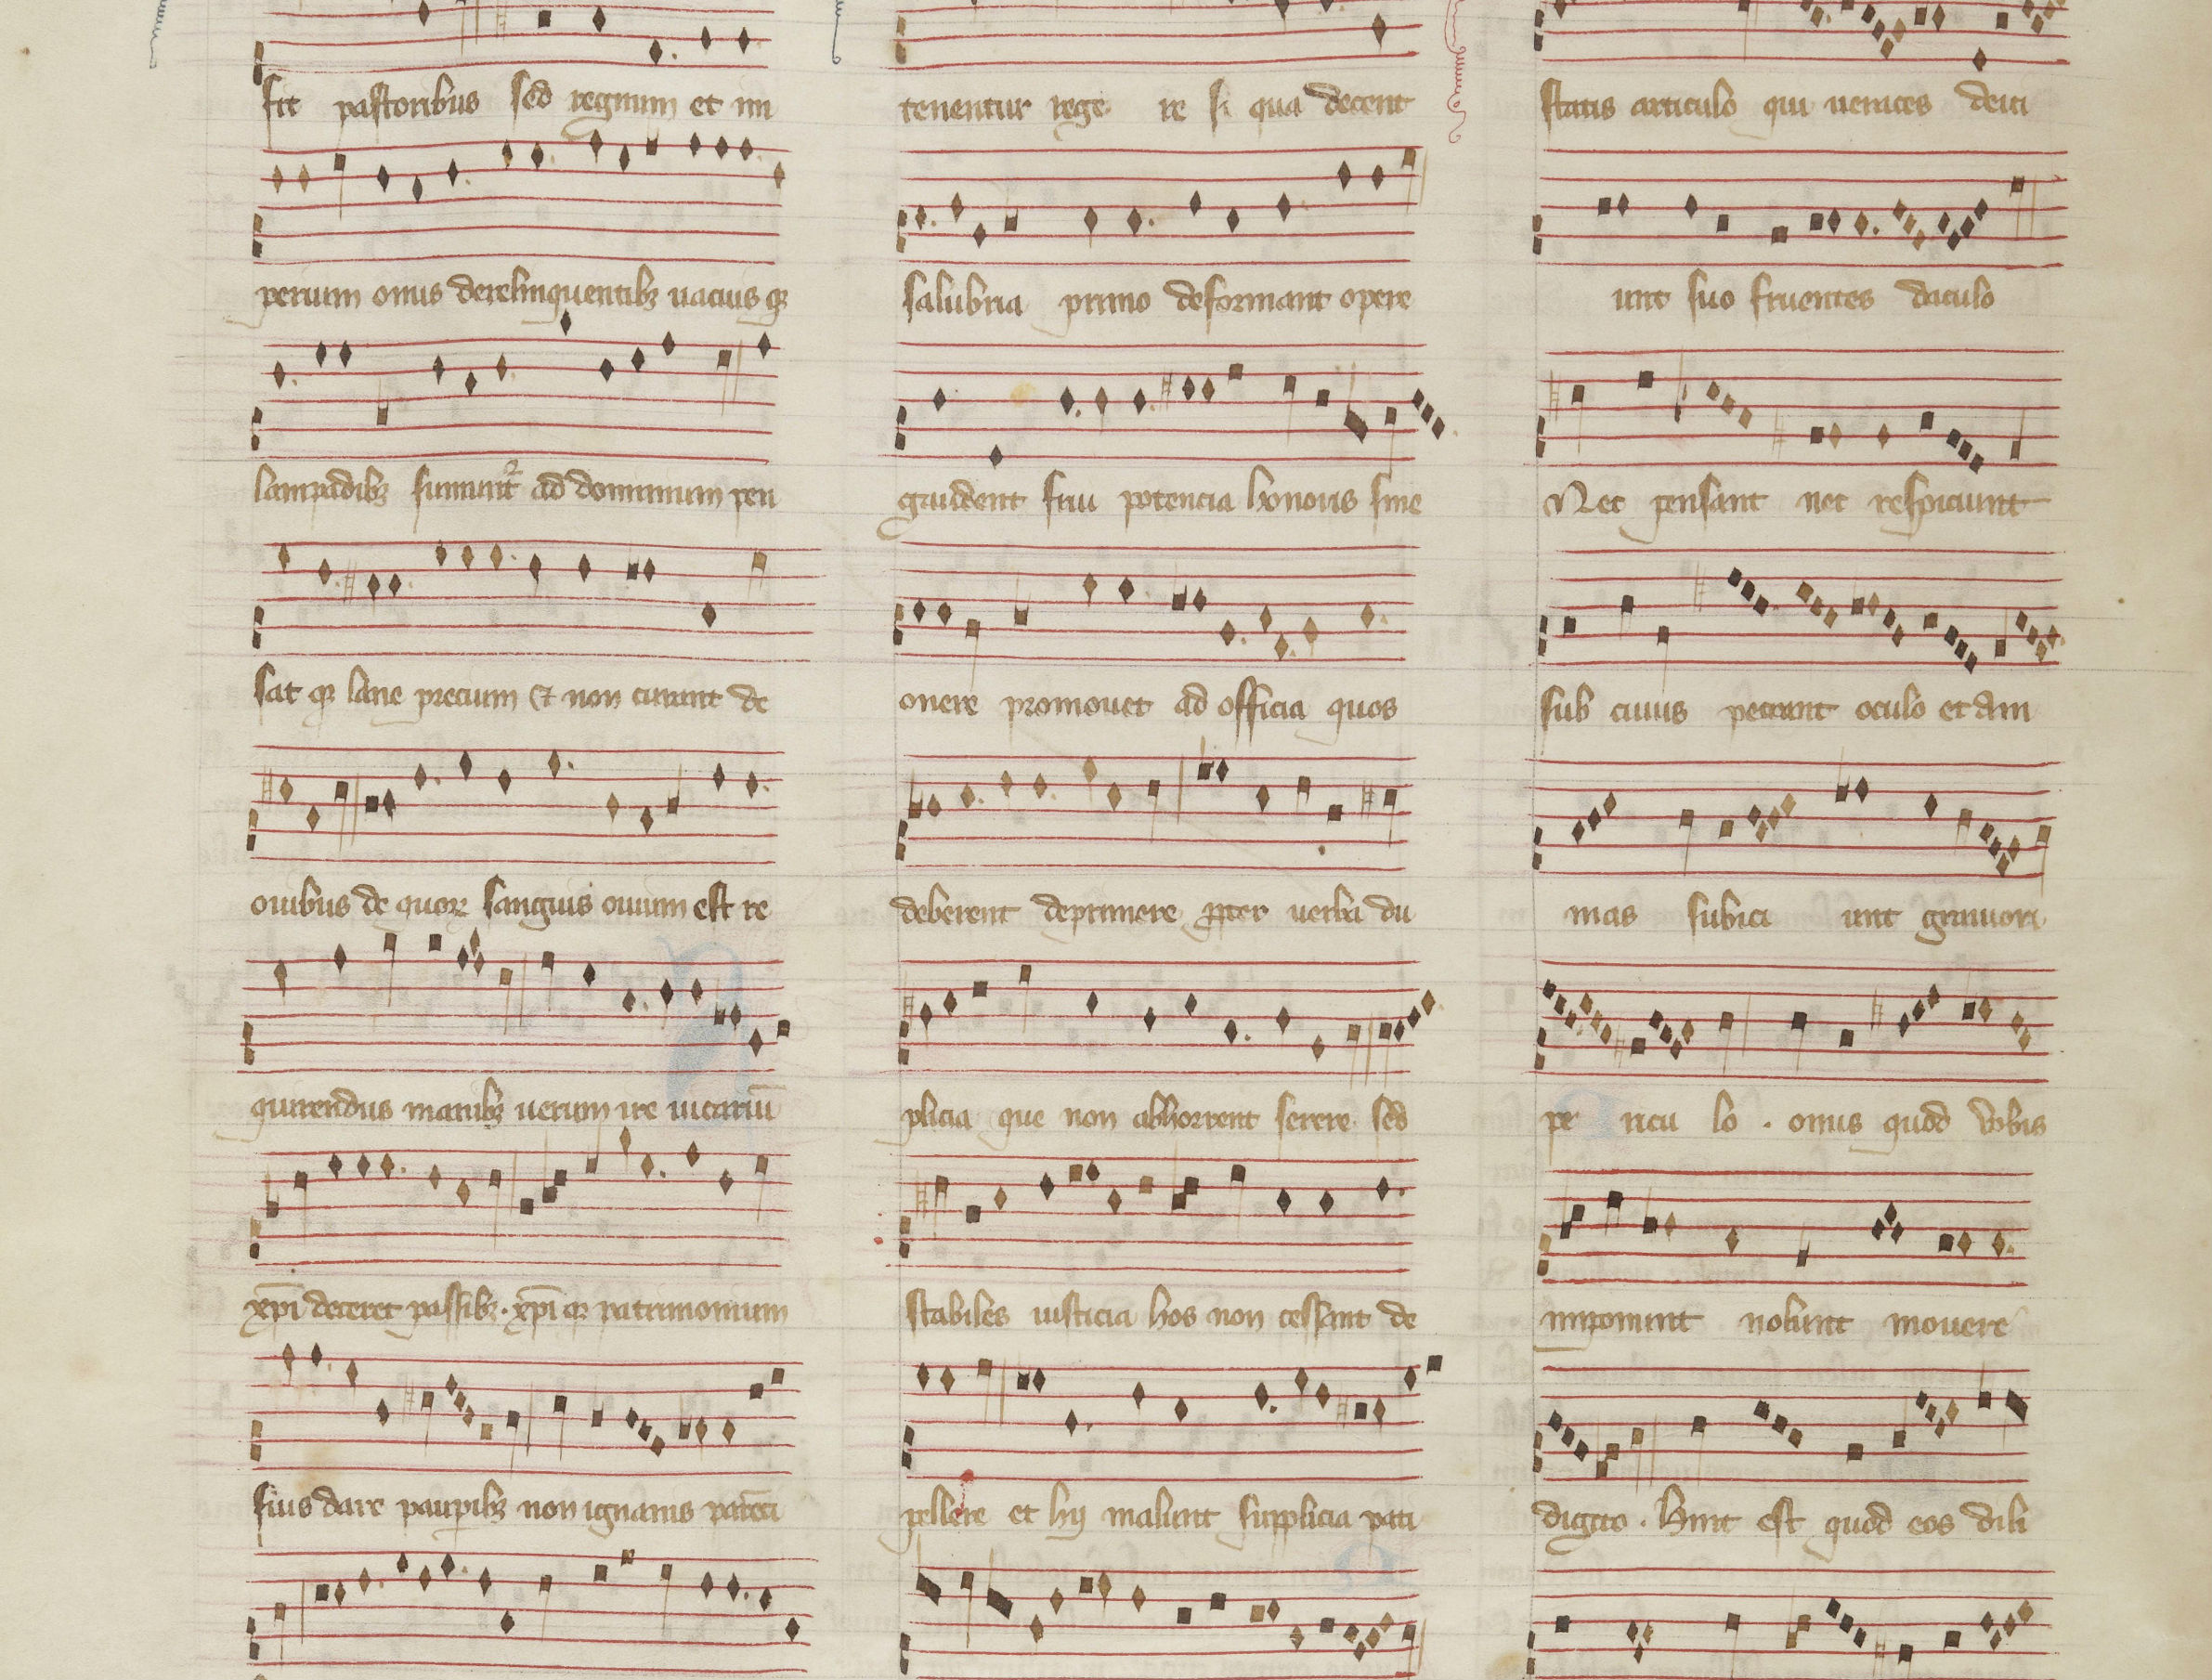 sit pastoribus sed regnum et im
perium onus derelinquentibꝫ uacuus qꝫ
lampadibꝫ ad dominum pen
sat qꝫ lane precium et non curant de
ouibus de quoꝝ sanguis ouium est re
quirendus manibꝫ uerum ire uicariū
xp̄i deceret passibꝫ. xp̄i qꝫ patrimonium
suis dare pauꝑibꝫ non ignauis
tenentur rege re si qua decent
salubria primo deformant opere
gaudent frui potencia honoris sine
onere promouet ad officia quos
deberent deprimere ꝓpter uerba du
plicia que non abhorrent serere sed
stabiles iusticia hos non cessant de
pellere et hij malunt supplicia pati
statis articulo qui uenices deici
unt suo fruentes
Nec pensant nec respiciunt
sub cuius peccant oculo et am
mas subici unt grauiori
pe ricu lo . onus quod vrbis
imponunt nolunt mouere
digito . hinc est quod eos dili